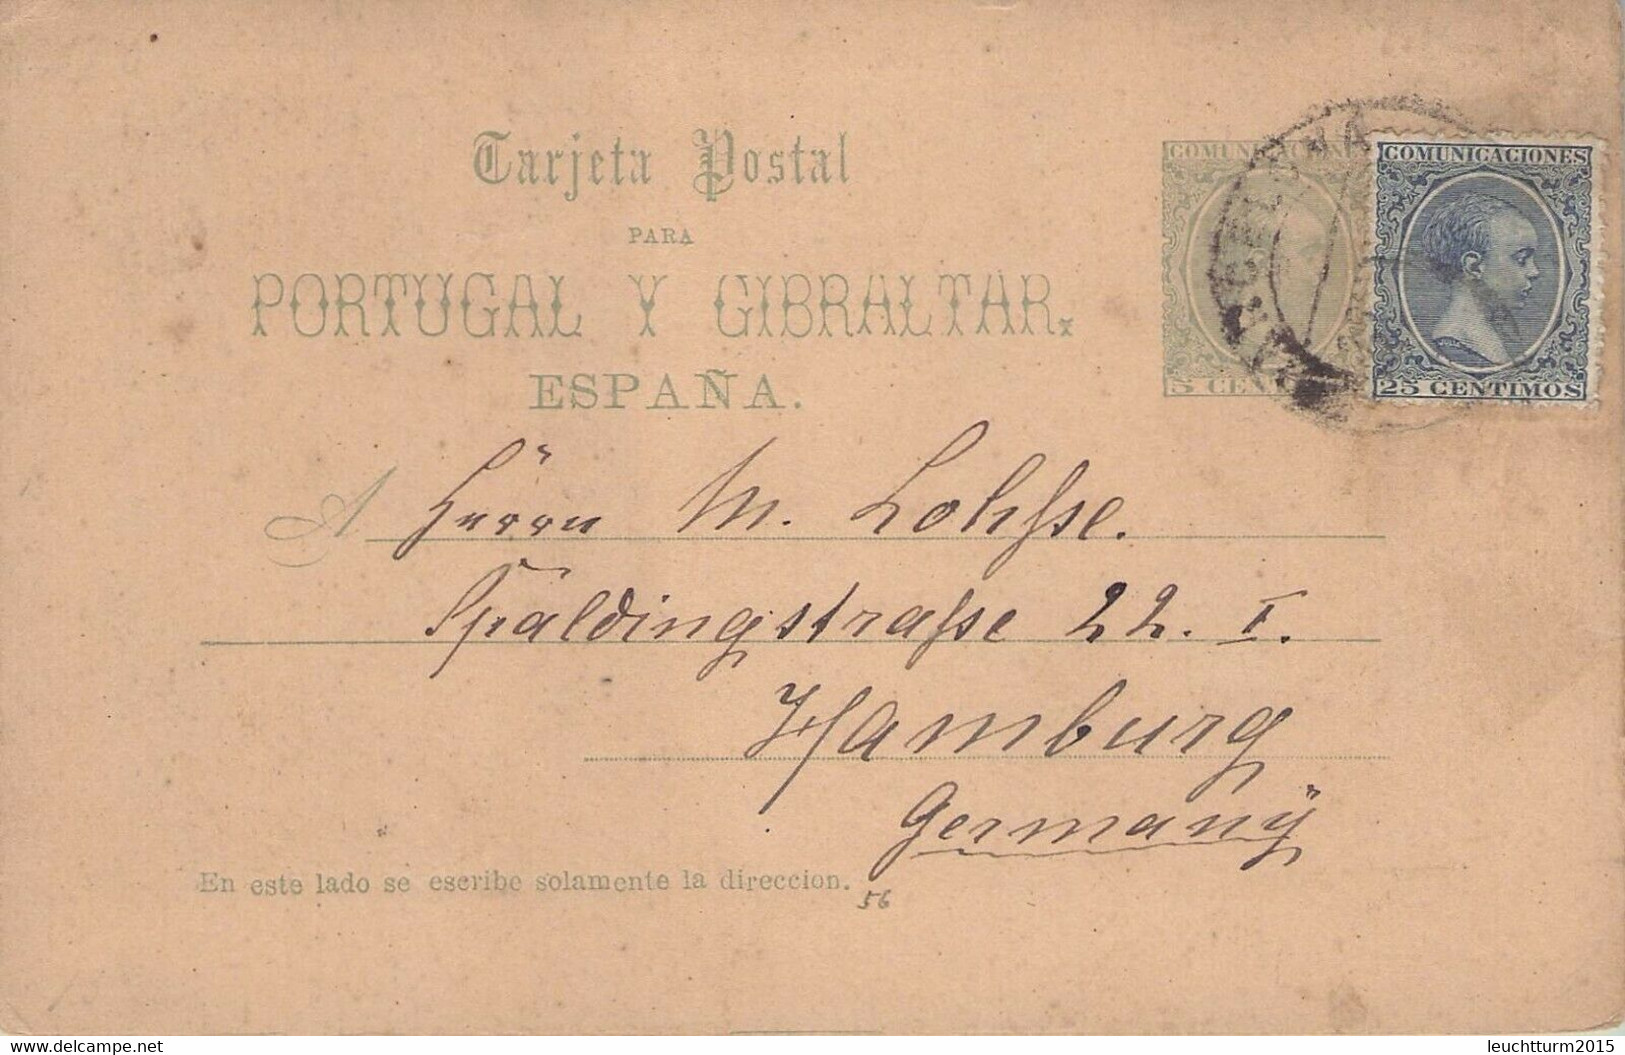 Tarjeta Postal
PARA
PORTUGAL Y GIBRALTAR.
ESPAÑA.
COMUNICACIONES
25 CENTIMOS
A Herrn M. Lohsse.
Spaldingstrasse 22. I.
Hamburg
Germany
En este lado se escribe solamente la direccion.
56
leuchtturm2015